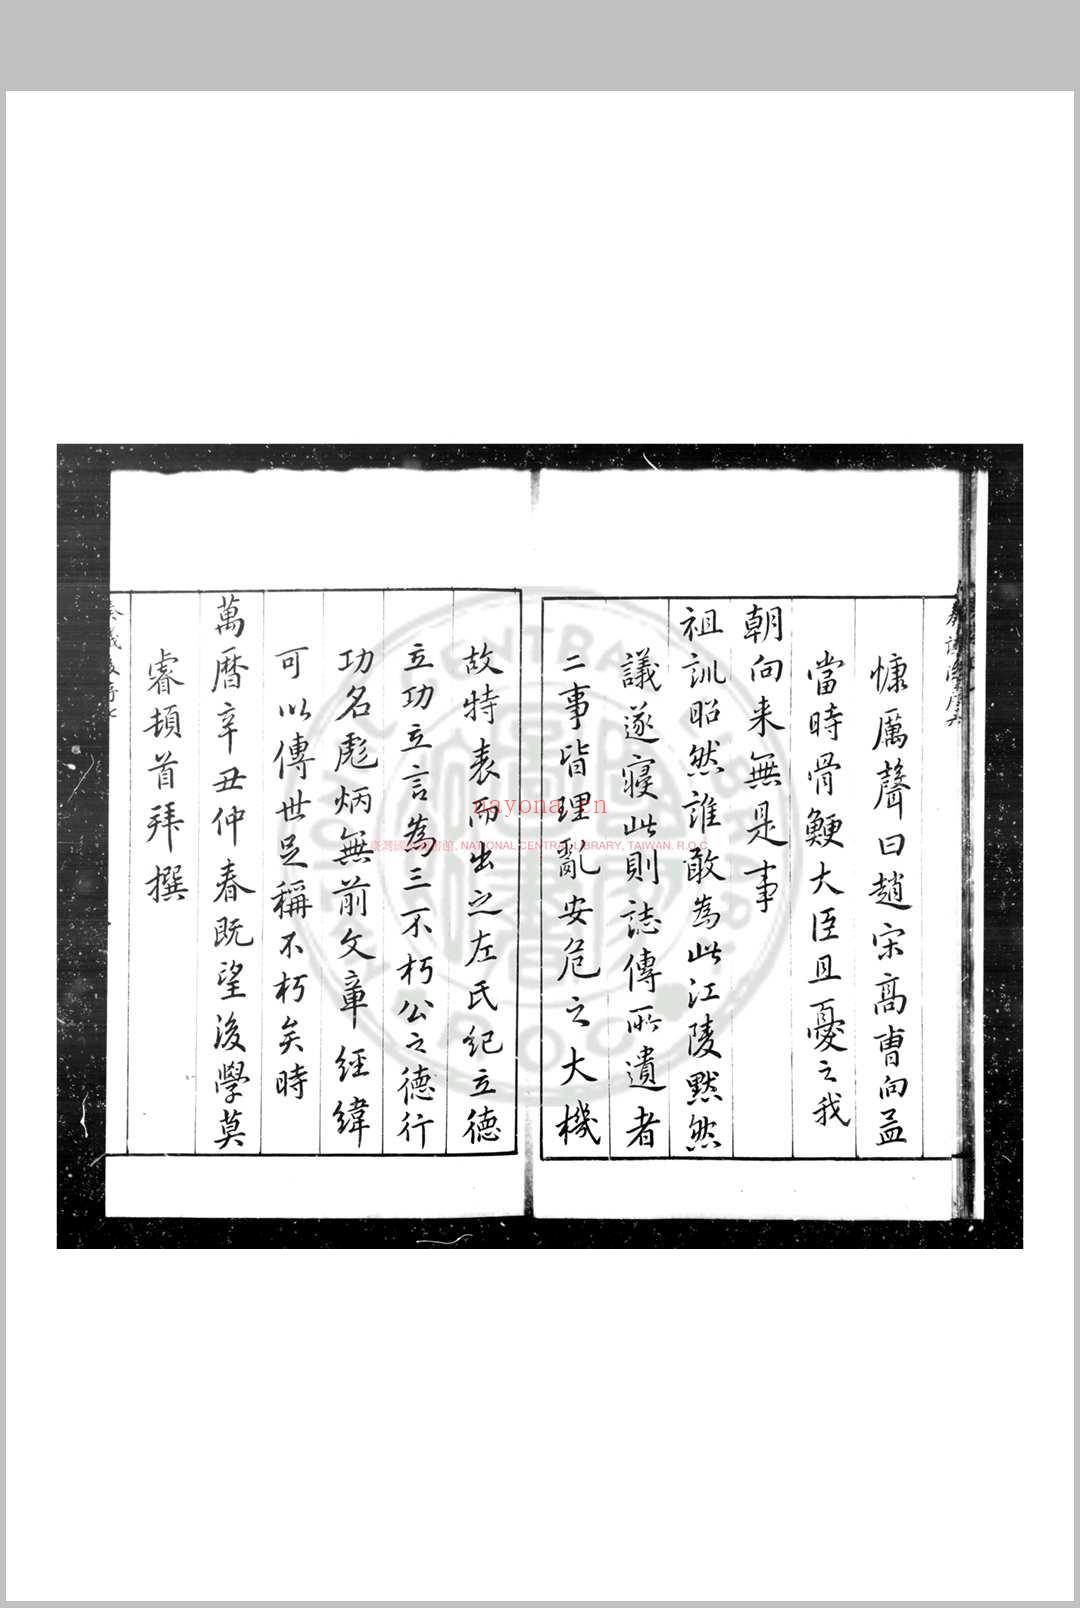 慷厲聲曰趙宋高曹向孟
當時骨鯁大臣且憂之我
朝向来無是事
祖訓昭然誰敢為此江陵黙然
議遂寢此則誌傳所遺者
二事皆理亂安危之大機
故特表而出之左氏紀立德
立功立言為三不朽公之德行
功名彪炳無前文章經緯
可以傳世足稱不朽矣時
萬曆辛丑仲春既望後學莫
睿頓首拜撰
nayona.cn
臺灣國家圖書館, NATIONAL CENTRAL LIBRARY, TAIWAN. R.O.C